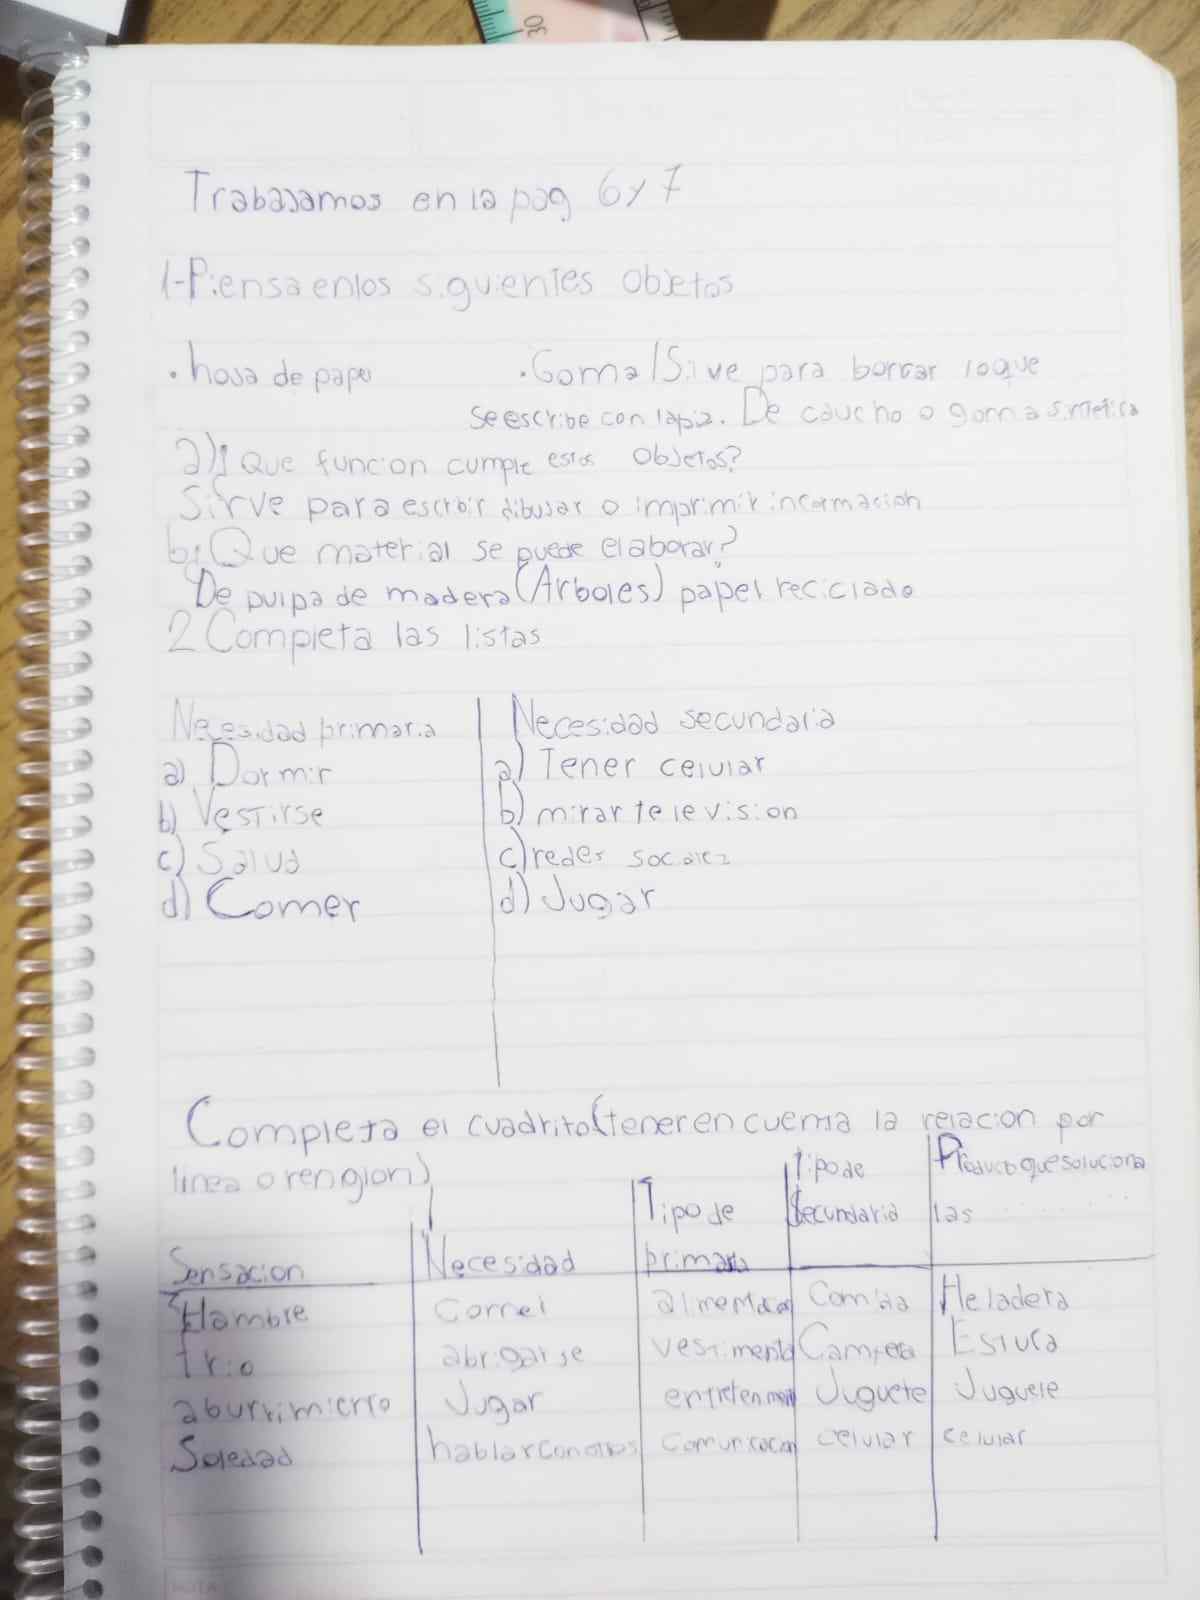 30
Trabajamos en la pag 6 y 7
1-Piensa en los siguientes objetos
• hoja de papel
• Goma / Sirve para borrar lo que
se escribe con lapiz. De caucho o goma sintetica
a) ¿Que funcion cumple estos objetos?
Sirve para escribir dibujar o imprimir informacion
b) Que material se puede elaborar?
De pulpa de madera (Arboles) papel reciclado
2 Completa las listas
Necesidad primaria | Necesidad secundaria
a) Dormir | a) Tener celular
b) Vestirse | b) mirar television
c) Salud | c) redes sociales
d) Comer | d) Jugar
Completa el cuadrito (tener en cuenta la relacion por
linea o renglon)
Sensacion | Necesidad | Tipo de primaria | Tipo de Secundaria | Producto que soluciona las
Hambre | Comer | alimentacion | Comida | Heladera
frio | abrigarse | vestimenta | Campera | Estufa
aburrimiento | Jugar | entretenimiento | Juguete | Juguete
Soledad | hablar con otros | comunicacion | celular | celular
NOTA